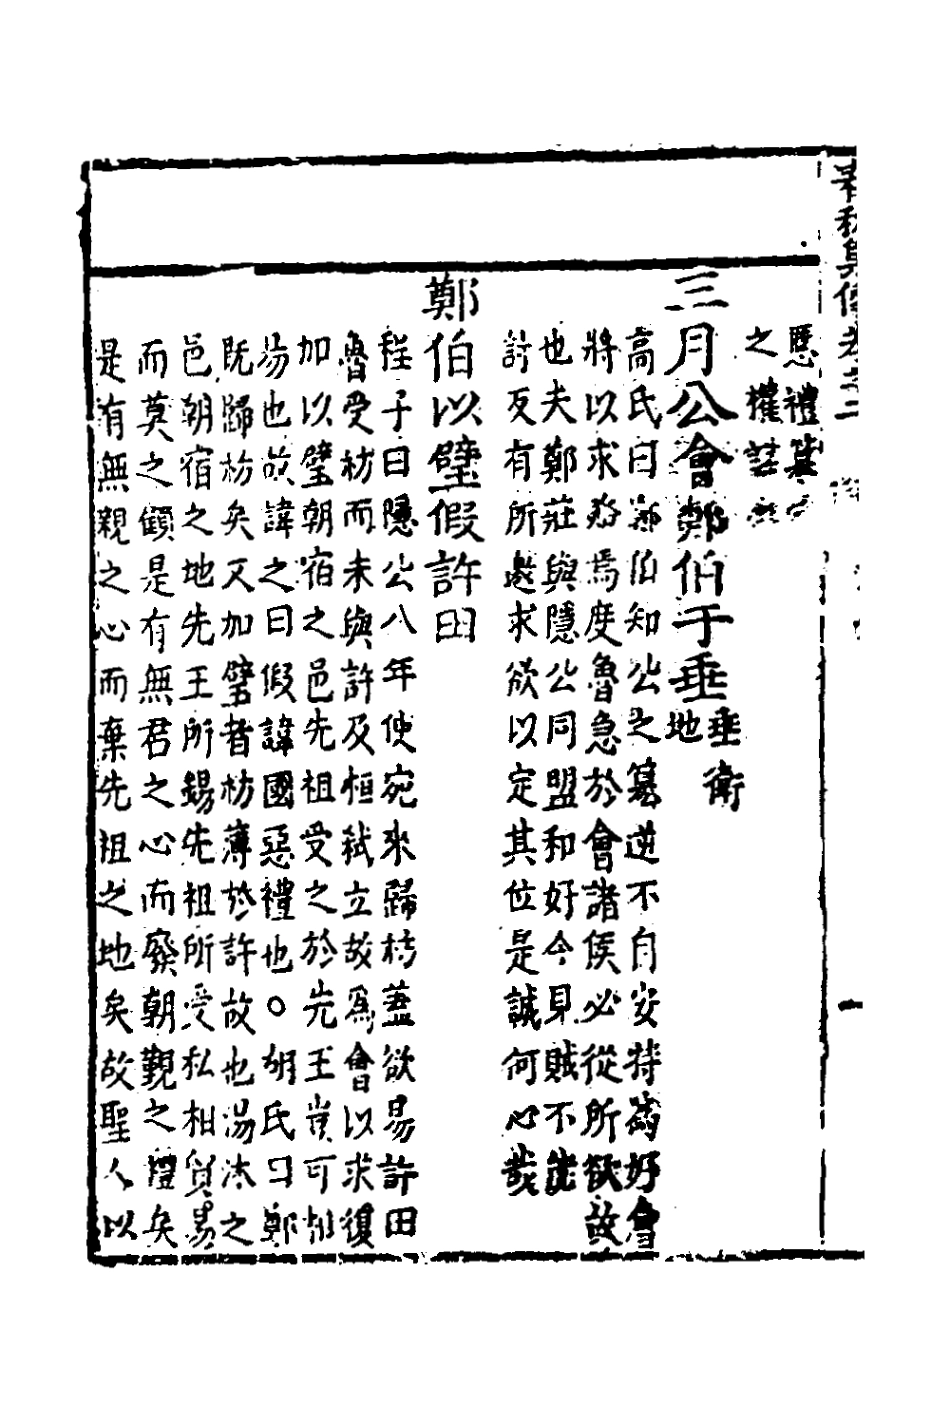 春秋集傳卷之二
愿禮
之權
三月公會鄭伯于垂垂衛地
高氏曰鄭伯知公之篡逆不自安特爲好會
將以求援焉度魯急於會諸侯必從所欲故
也夫鄭莊與隱公同盟和好今見賊不
討反有所邀求欲以定其位是誠何心哉
鄭伯以璧假許田
程子曰隱公八年使宛來歸枋蓋欲易許田
魯受枋而未與許及桓弒立故爲會以求復
加以璧朝宿之邑先祖受之於先王豈可相
易也故諱之曰假諱國惡禮也○胡氏曰鄭
既歸枋矣又加璧者枋薄於許故也湯沐之
邑朝宿之地先王所錫先祖所受私相貿易
而莫之顧是有無君之心而廢朝覲之禮矣
是有無親之心而棄先祖之地矣故聖人以